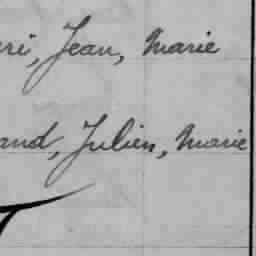 ri, Jean, Marie
and, Julien, Marie